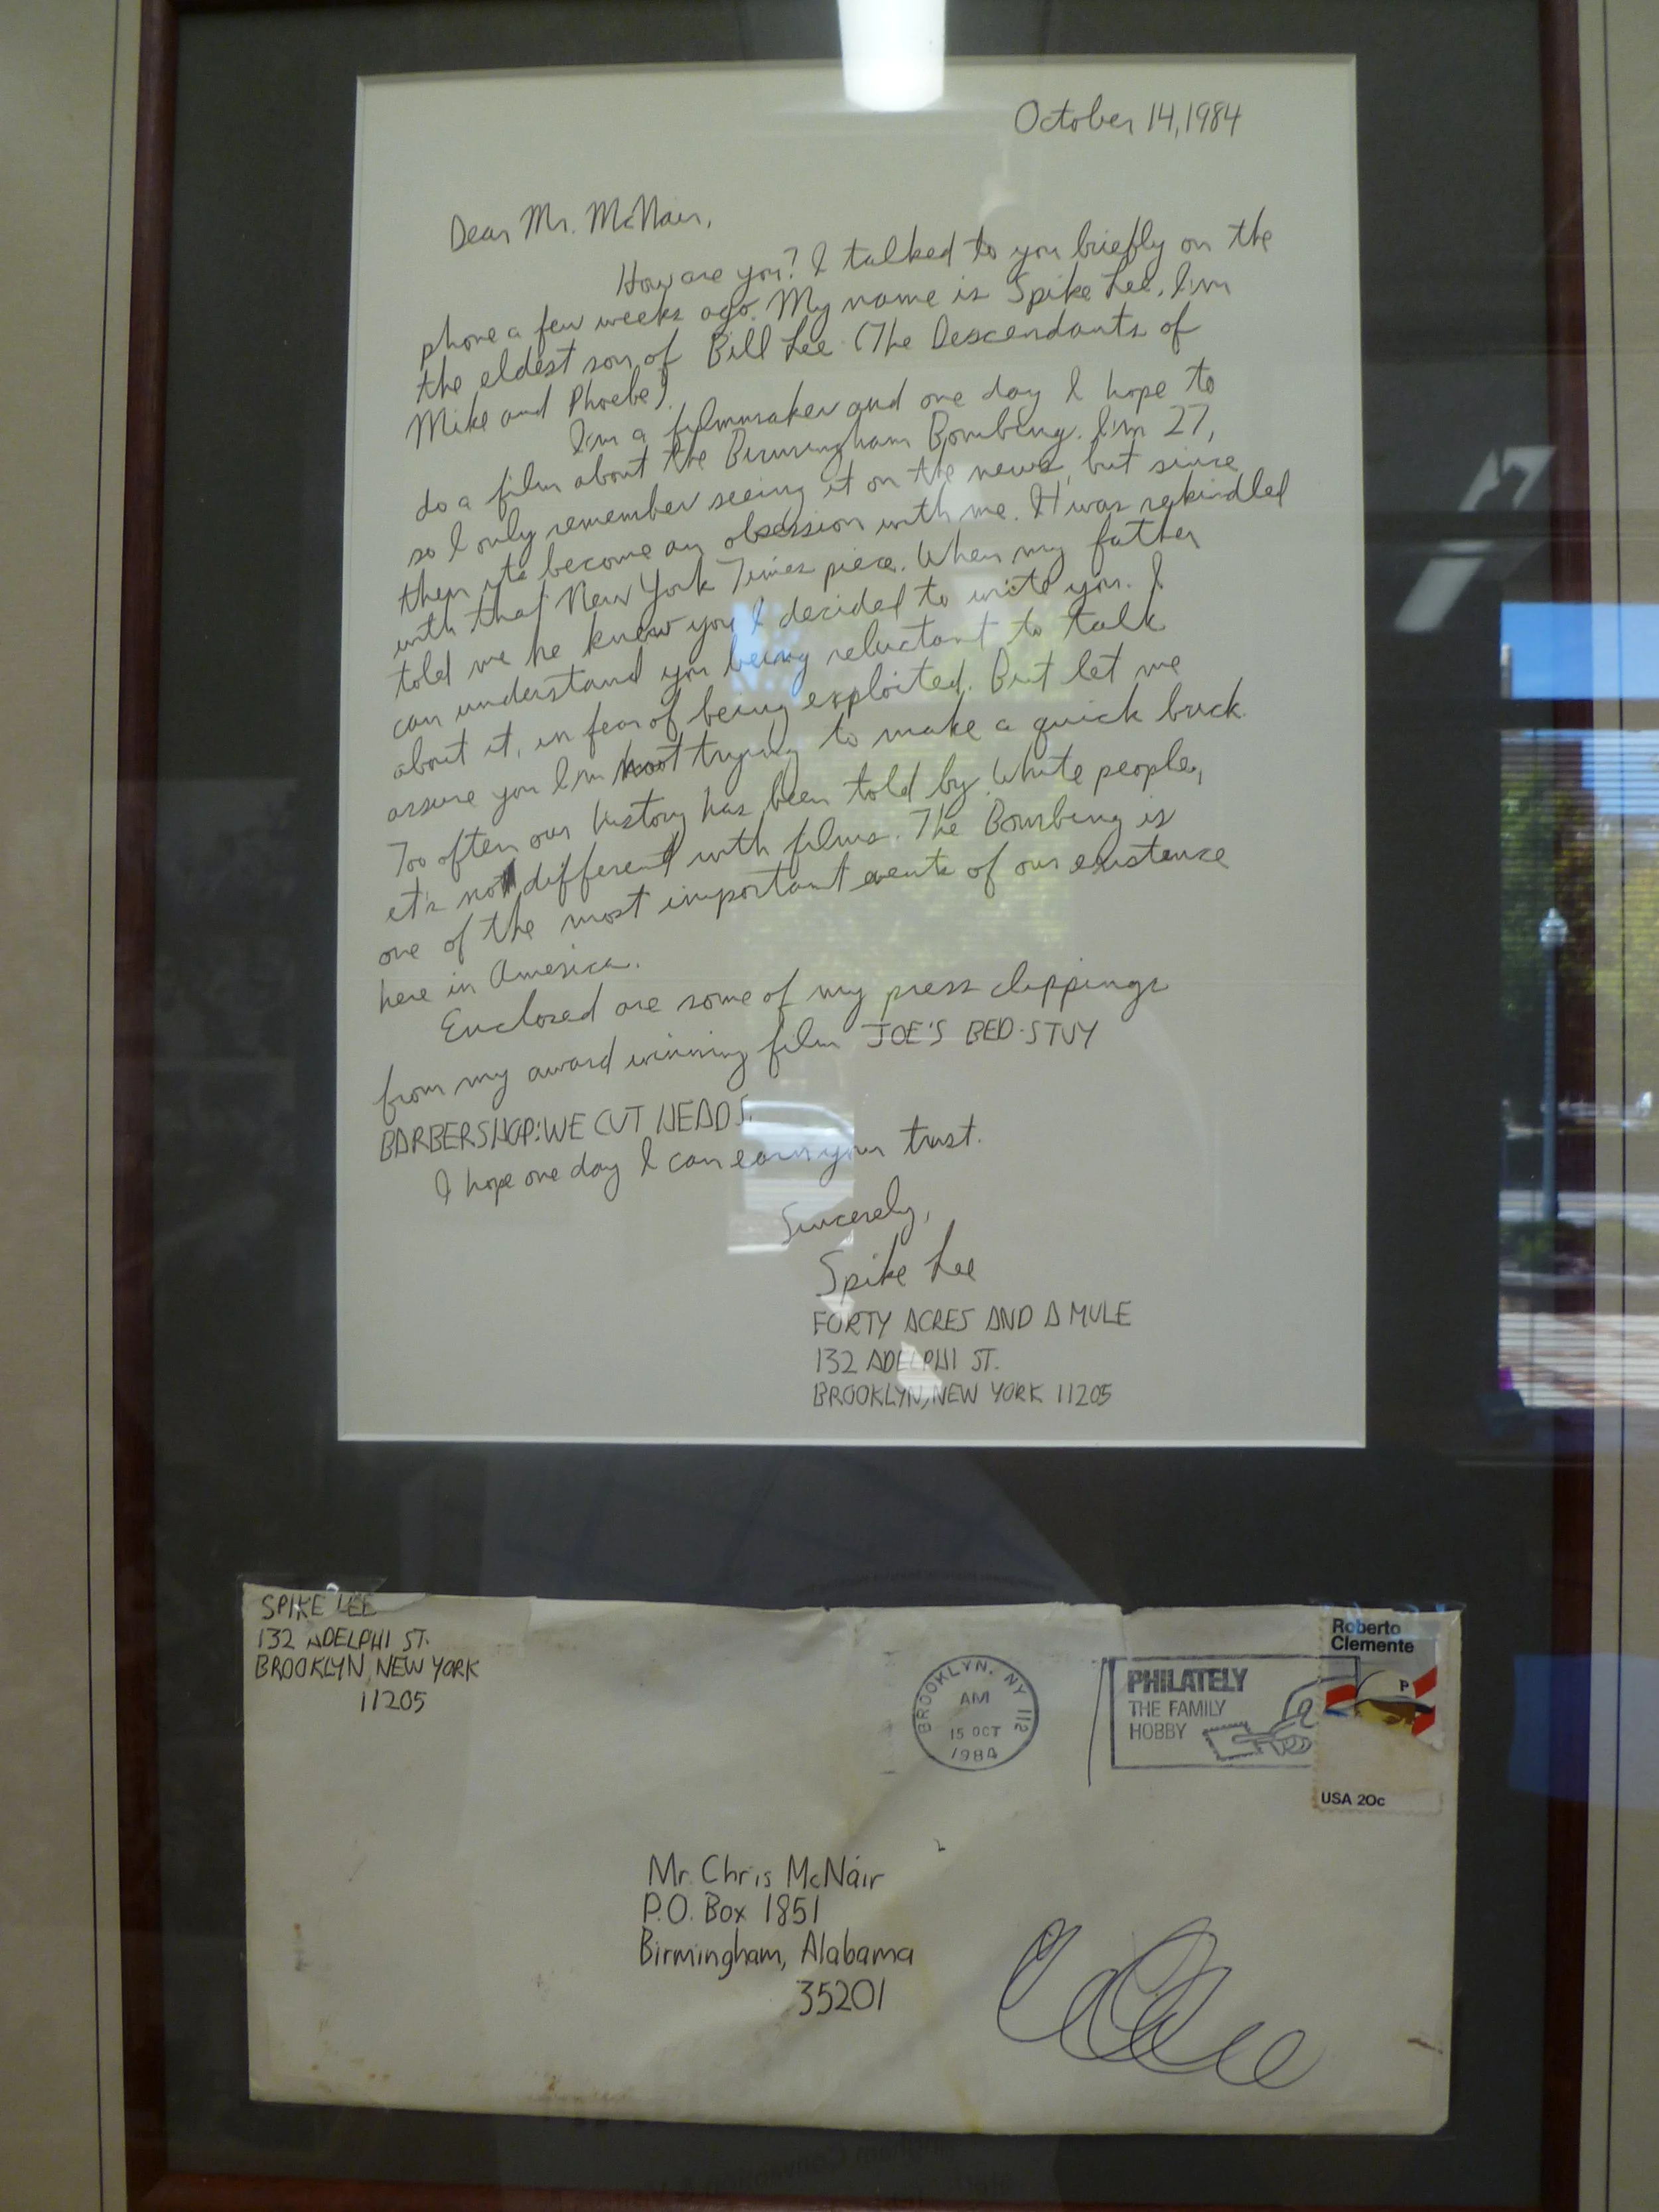 October 14, 1984
Dear Mr. McNair,
How are you? I talked to you briefly on the
phone a few weeks ago. My name is Spike Lee. I'm
the eldest son of Bill Lee (The Descendants of
Mike and Phoebe).
I'm a filmmaker and one day I hope to
do a film about the Birmingham Bombing. I'm 27,
so I only remember seeing it on the news, but since
then it's become an obsession with me. It was rekindled
with that New York Times piece. When my father
told me he knew you I decided to write you. I
can understand you being reluctant to talk
about it, in fear of being exploited. But let me
assure you I'm not trying to make a quick buck.
Too often our history has been told by White people,
it's not different with films. The Bombing is
one of the most important events of our existence
here in America.
Enclosed are some of my press clippings
from my award winning film JOE'S BED-STUY
BARBERSHOP: WE CUT HEADS.
I hope one day I can earn your trust.
Sincerely,
Spike Lee
FORTY ACRES AND A MULE
132 ADELPHI ST.
BROOKLYN, NEW YORK 11205
SPIKE LEE
132 ADELPHI ST.
BROOKLYN, NEW YORK
11205
BROOKLYN, NY 112
AM
15 OCT
1984
PHILATELY
THE FAMILY
HOBBY
Roberto
Clemente
P
USA 20c
Mr. Chris McNair
P.O. Box 1851
Birmingham, Alabama
35201